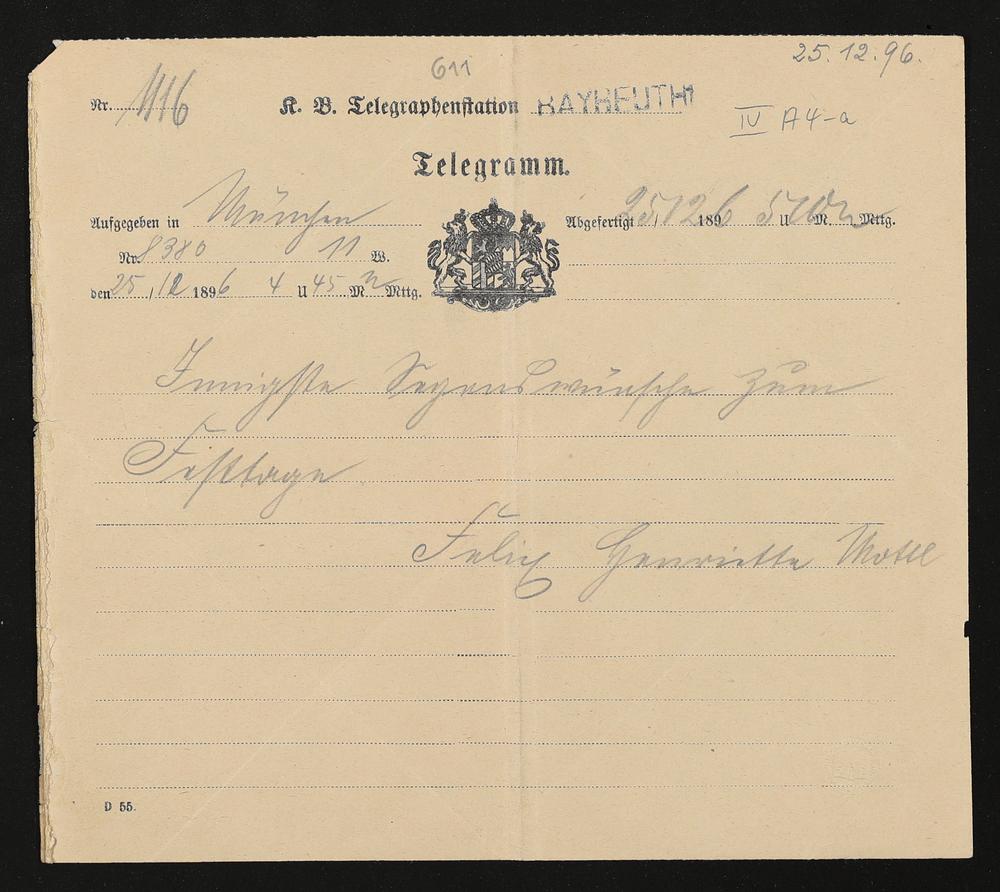 25.12.96.
611
Nr. 1116 K. B. Telegraphenstation BAYREUTH
IV A4-a
Telegramm.
Aufgegeben in München Abgefertigt 25/12 1896 5 U M. N Mttg.
Nr. 8380 11 W.
den 25/12 1896 4 U 45 M N Mttg.
Innigste Segenswünsche zum
Festtage
Felix Henriette Mottl
D 55.